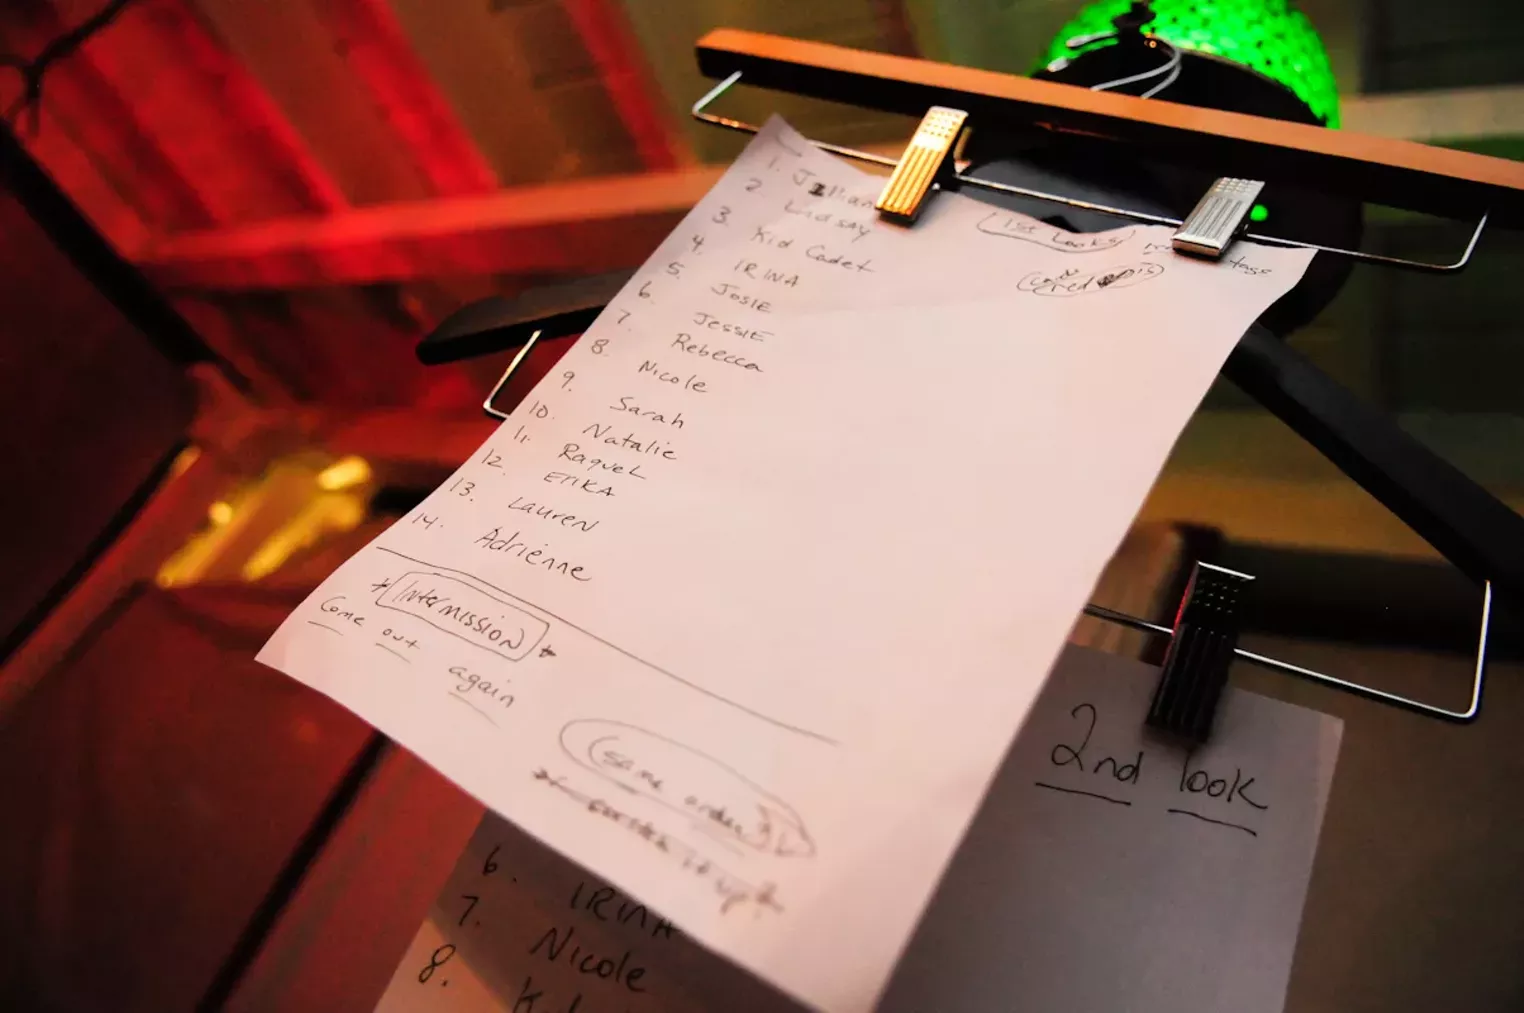 1. Jillian
2. Lindsay
3. Kid Cadet
4. IRINA
5. JOSIE
6. JESSIE
7. Rebecca
8. Nicole
9. Sarah
10. Natalie
11. Raquel
12. ERIKA
13. Lauren
14. Adrienne
1st Looks
* Intermission *
Come out again
(same order)
it up?
2nd look
6. IRINA
7. Nicole
8.